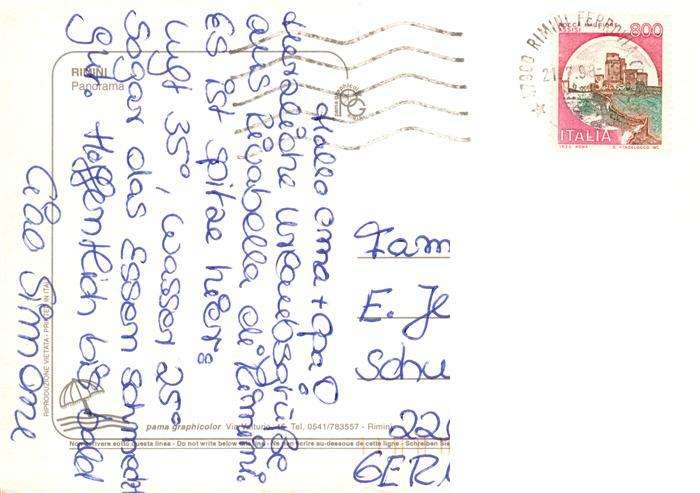 RIMINI
Panorama
PG
Hallo Oma + Opa!
Herzliche Urlaubsgrüße
aus Rivabella di Rimini.
Es ist spitze hier:
Luft 35°, Wasser 25°
Sogar das Essen schmeckt
gut. Hoffentlich bis bald
Ciao Simone
Fam
E. Je
Schu
22
GER
800
ITALIA
47900 RIMINI FERROVIA
RIPRODUZIONE VIETATA - PRINTED IN ITALY
pama graphicolor Via Vetturio, 15 Tel. 0541/783557 - Rimini
Non scrivere sotto questa linea - Do not write below this line - Ne rien écrire au-dessous de cette ligne - Schreiben Sie